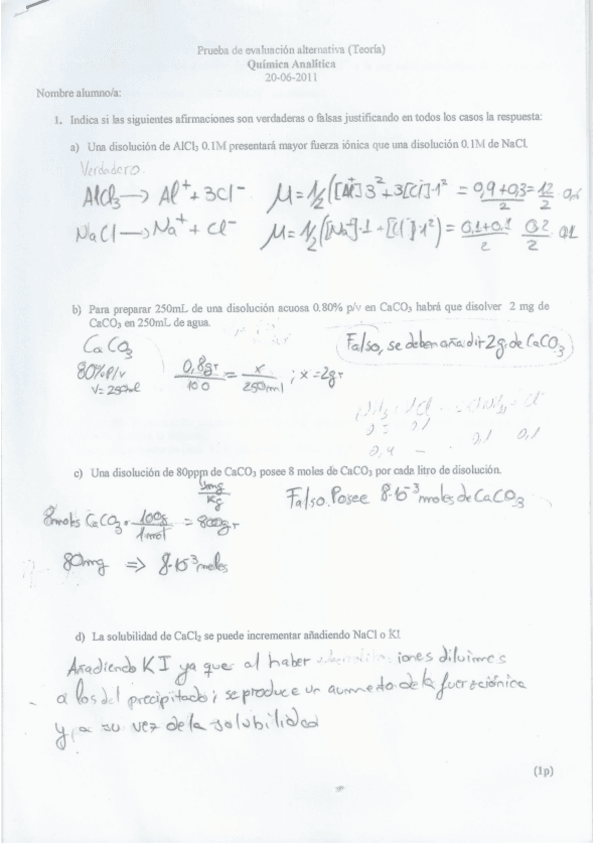 Prueba de evaluación alternativa (Teoría)
Química Analítica
20-06-2011
Nombre alumno/a:
1. Indica si las siguientes afirmaciones son verdaderas o falsas justificando en todos los casos la respuesta:
a) Una disolución de AlCl3 0.1M presentará mayor fuerza iónica que una disolución 0.1M de NaCl.
Verdadero.
AlCl3 → Al+ + 3Cl- μ = 1/2 ([Al+]3² + 3[Cl-]·1² = 0,9+0,3/2 = 1,2/2
NaCl → Na+ + Cl- μ = 1/2 ([Na+]·1 + [Cl-]·1²) = 0,1+0,1/2 0,2/2 0,1
b) Para preparar 250mL de una disolución acuosa 0.80% p/v en CaCO3 habrá que disolver 2 mg de
CaCO3 en 250mL de agua.
CaCO3 Falso, se deben añadir 2g de CaCO3
80% P/V 0,8gr/100 = x/250ml ; x = 2gr
V = 250mL
0,1 0,1
c) Una disolución de 80ppm de CaCO3 posee 8 moles de CaCO3 por cada litro de disolución.
mg/Kg Falso. Posee 8·10-3 moles de CaCO3
8mols CaCO3 · 100g/1mol = 800gr
80mg ⇒ 8·10-3 moles
d) La solubilidad de CaCl2 se puede incrementar añadiendo NaCl o KI
Añadiendo KI ya que al haber iones
a los del precipitado; se produce un aumento de la fuerza iónica
y a su vez de la solubilidad
(1p)